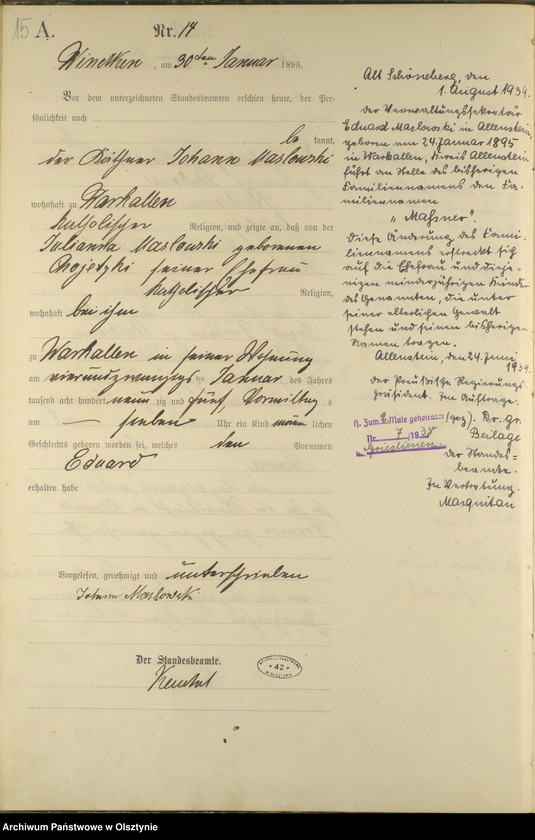 15
A.
Nr. 14
am 30ten Januar 1895.
Vor dem unterzeichneten Standesbeamten erschien heute, der Per-
sönlichkeit nach
be kannt,
der Käthner Johann Maslowski
wohnhaft zu Warkallen
katholischer Religion, und zeigte an, daß von der
Julianna Maslowski geborenen
seiner Ehefrau
katholischer Religion,
wohnhaft bei ihm
zu Warkallen in seiner Wohnung
am vierundzwanzigsten Januar des Jahres
tausend acht hundert neunzig und fünf, Vormittags
um — sieben Uhr ein Kind männlichen
Geschlechts geboren worden sei, welches den Vornamen
Eduard
erhalten habe
Vorgelesen, genehmigt und unterschrieben
Johann Maslowski
Der Standesbeamte.
ARCHIWUM PAŃSTWOWE
* 42 *
W OLSZTYNIE
Alt Schöneberg, den
1. August 1939.
Der Verwaltungssekretär
Eduard Maslowski in Allenstein,
geboren am 24. Januar 1895
in Warkallen, Kreis Allenstein
führt an Stelle des bisherigen
Familiennamens den Fa-
miliennamen
„Maßner“.
Diese Änderung des Fami-
liennamens erstreckt sich
auf die Ehefrau und dieje-
nigen minderjährigen Kinder
des Genannten, die unter
seiner elterlichen Gewalt
stehen und seinen bisherigen
Namen tragen.
Allenstein, den 24. Juni
1939.
Der Preußische Regierungs
präsident. Im Auftrage.
(gez). Dr. Gr.
Beilage
Der Standes=
beamte.
In Vertretung.
H. Zum 2 Male geheiratet
Nr. 7 / 1938
Archiwum Państwowe w Olsztynie